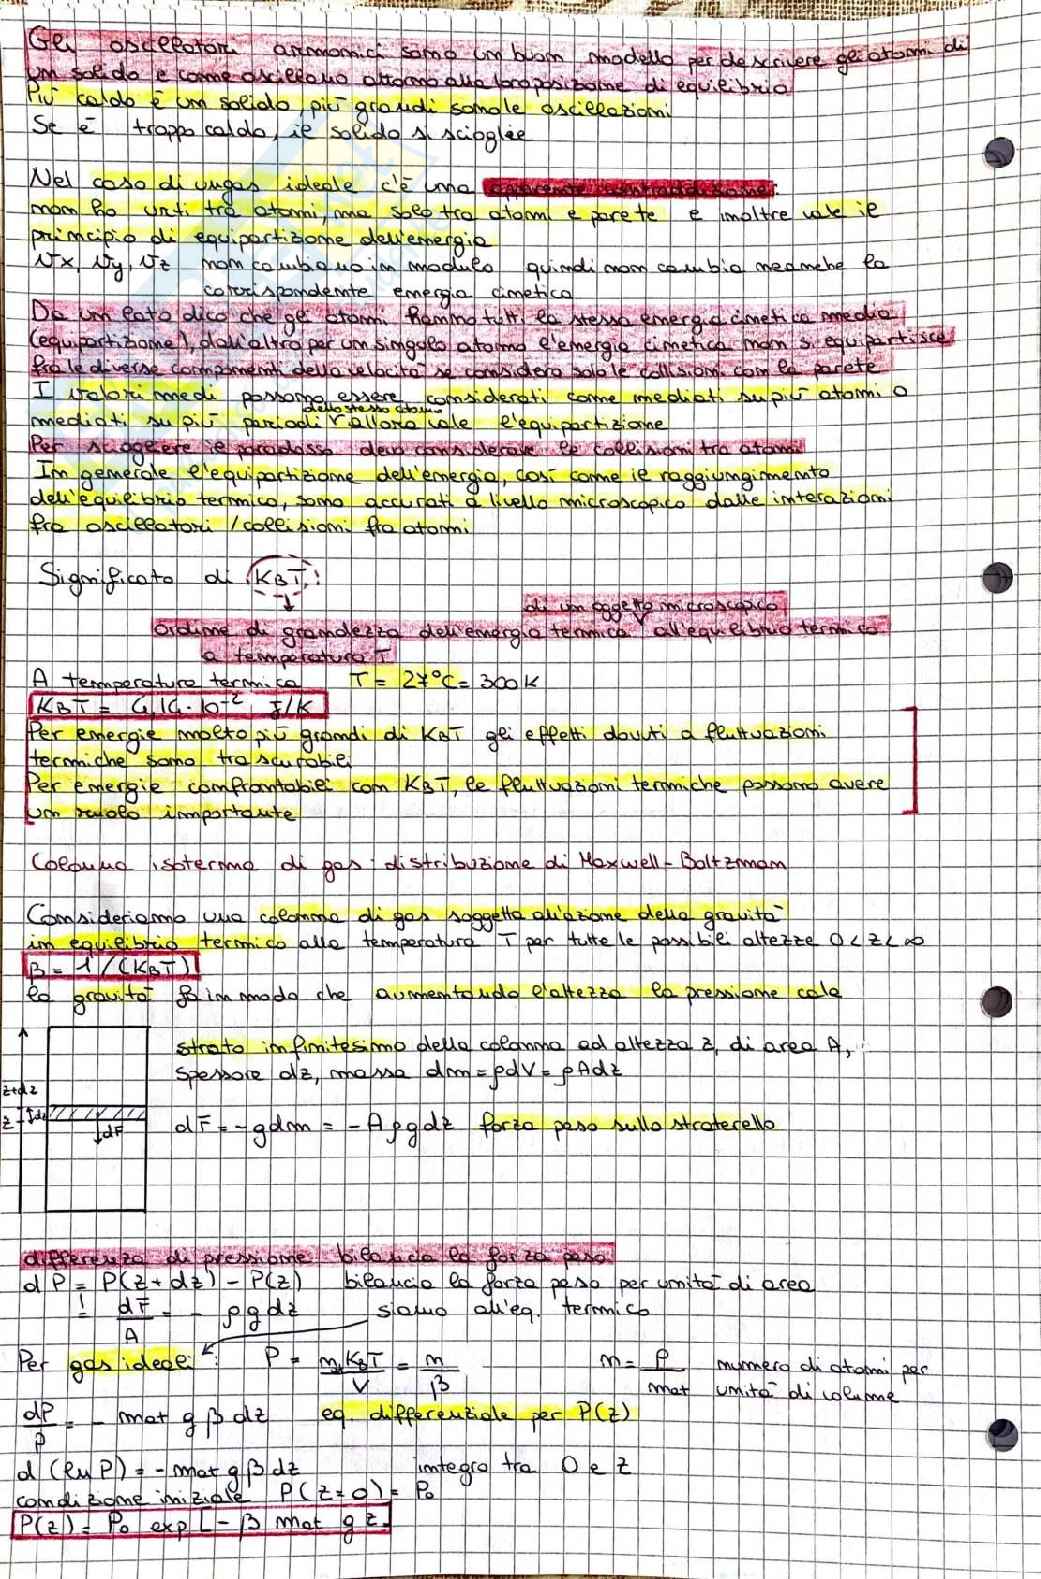 Gli oscillatori armonici sono un buon modello per descrivere gli atomi di
un solido e come oscillano attorno alla loro posizione di equilibrio
Più caldo è un solido, più grandi sono le oscillazioni
Se è troppo caldo, il solido si scioglie
Nel caso di un gas ideale c'è una apparente contraddizione:
non ho urti tra atomi, ma solo tra atomi e parete e inoltre vale il
principio di equipartizione dell'energia
Vx, Vy, Vz non cambiano in modulo quindi non cambia neanche la
corrispondente energia cinetica
Da un lato dico che gli atomi hanno tutti la stessa energia cinetica media
(equipartizione), dall'altro per un singolo atomo l'energia cinetica non si equipartisce
fra le diverse componenti della velocità se considero solo le collisioni con la parete
I valori medi possono essere considerati come mediati su più atomi o
dello stesso atomo
mediati su più periodi √ allora vale l'equipartizione
Per sciogliere il paradosso devo considerare le collisioni tra atomi
In generale l'equipartizione dell'energia, così come il raggiungimento
dell'equilibrio termico, sono accurati a livello microscopico dalle interazioni
fra oscillatori / collisioni fra atomi
Significato di KBT:
di un oggetto microscopico
ordine di grandezza dell'energia termica √ all'equilibrio termico
a temperatura T
A temperatura termica T = 27°C = 300K
KBT = 4,14·10⁻² J/K
Per energie molto più grandi di KBT gli effetti dovuti a fluttuazioni
termiche sono trascurabili
Per energie confrontabili con KBT, le fluttuazioni termiche possono avere
un ruolo importante
Colonna isoterma di gas: distribuzione di Maxwell-Boltzman
Consideriamo una colonna di gas soggetta all'azione della gravità
in equilibrio termico alla temperatura T per tutte le possibili altezze 0<z<∞
β = 1/(KBT)
la gravità fa in modo che aumentando l'altezza la pressione cala
strato infinitesimo della colonna ad altezza z, di area A,
spessore dz, massa dm = ρdV = ρAdz
z+dz
z dz
dF
dF = -gdm = -Aρgdz forza peso sullo straterello
differenza di pressione bilancia la forza peso
dP = P(z+dz) - P(z) bilancia la forza peso per unità di area
! = dF/A = - ρgdz siamo all'eq. termico
Per gas ideali: P = n KBT / V = n/β n = ρ/mat numero di atomi per unità di volume
dP/P = - mat g β dz eq. differenziale per P(z)
d (ln P) = - mat g β dz integro tra 0 e z
condizione iniziale P(z=0) = P₀
P(z) = P₀ exp [-β mat g z]